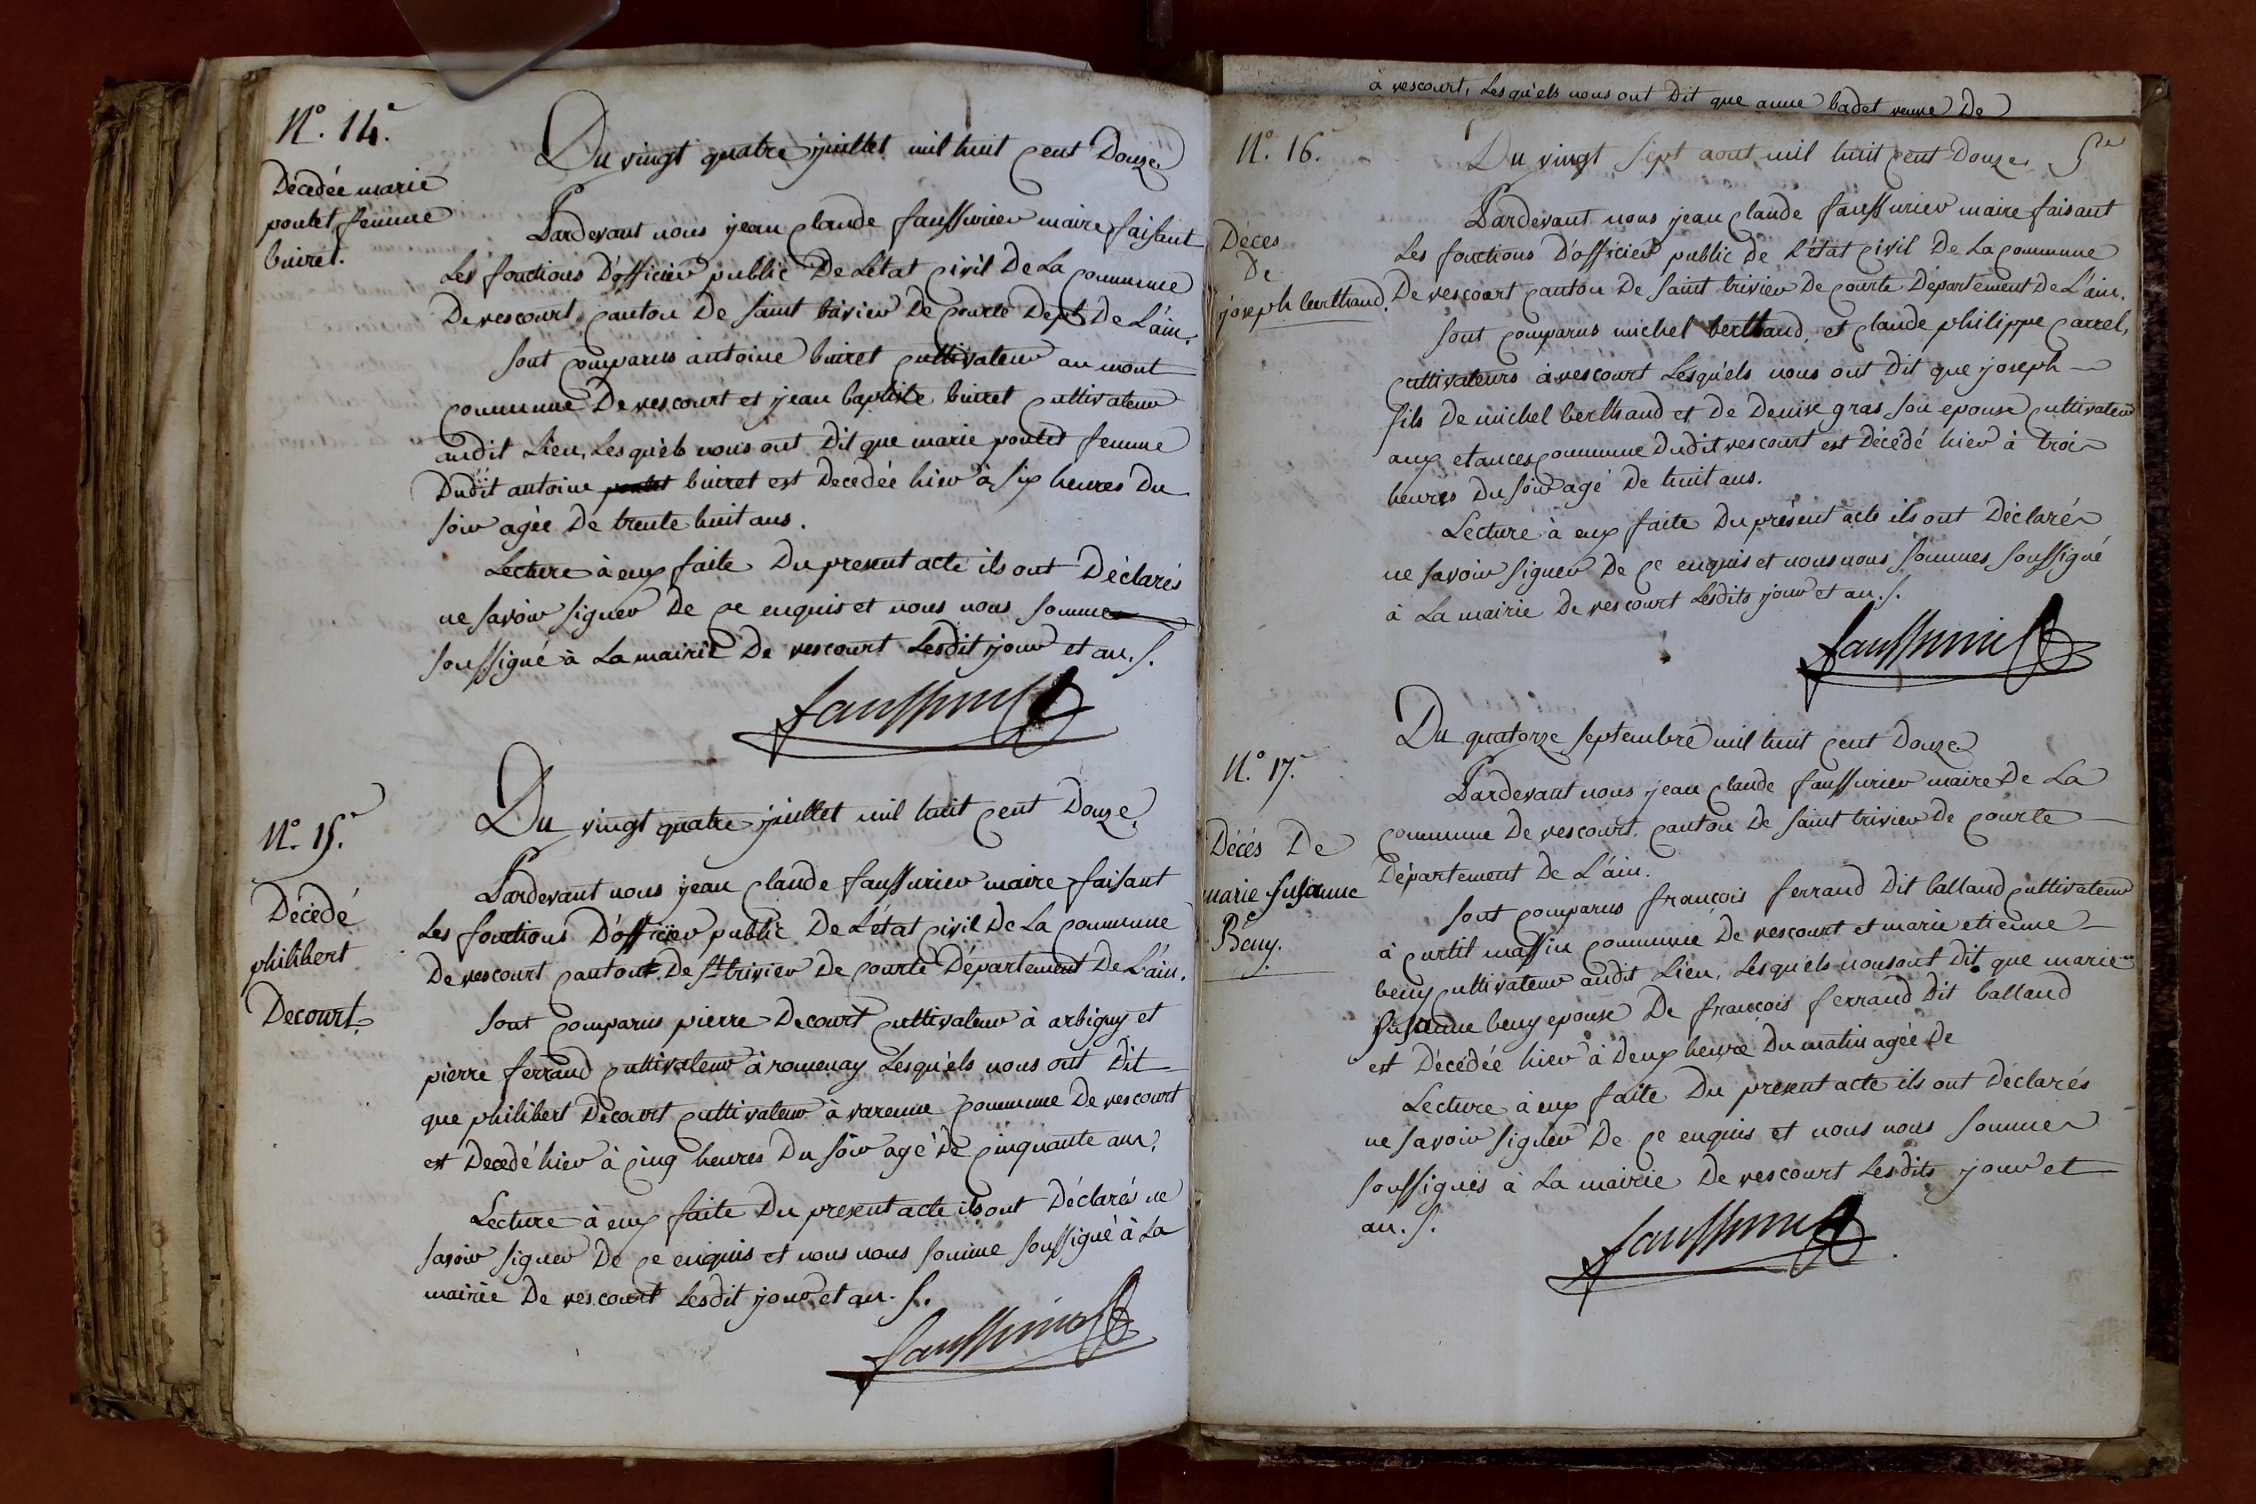 N.º 14.e
Décedée marie
poutet femme
buiret.
Du vingt quatre juillet mil huit cent Douze
Pardevant nous jean Claude faussurier maire faisant
Les fonctions D'officier public De L'état civil De La commune
De vescourt, canton De saint trivier De Courte Dept. De L'ain.
sont comparus antoine buiret cultivateur au mont
commune De vescourt et jean baptiste buiret cultivateur
audit Lieu, Lesquéls nous ont Dit que marie poutet femme
Dudit antoine poutet buiret est Decedée hier à six heures Du
soir agée De trente huit ans.
Lecture à eux faite Du present acte ils ont Déclarés
ne savoir signer De ce enquis et nous nous sommes
soussigné à La mairie De vescourt Lesdit jour et an. /.
faussurier
N.º 15.e
Décédé
philibert
Decourt.
Du vingt quatre juillet mil huit cent Douze.
Pardevant nous jean Claude faussurier maire faisant
Les fonctions D'officier public De L'état civil De La commune
De vescourt canton De St trivier De courte Département De L'ain.
sont comparus pierre Decourt cultivateur à arbigny et
pierre ferraud cultivateur à romenay Lesquéls nous ont Dit
que philibert Decourt cultivateur à varenne commune De vescourt
est Decedé hier à cinq heures Du soir agé De cinquante ans.
Lecture à eux faite Du present acte ils ont Déclarés ne
savoir signer De ce enquis et nous nous somme soussigné à La
mairie De vescourt Lesdit jour et an. /.
faussurier
à vescourt, Lesquéls nous ont Dit que anne badet veuve De
N.º 16.e
5.e
Déces
De
joseph berthaud.
Du vingt sept aout mil huit cent Douze
Pardevant nous jean Claude faussurier maire faisant
Les fonctions D'officier public de L'état civil De La commune
De vescourt canton De saint trivier De courte Département De L'ain.
sont comparus michel berthaud, et claude philippe carrel,
cultivateurs à vescourt Lesquéls nous ont Dit que joseph
fils De michel berthaud et De Denise gras son epouse cultivateur
aux etances commune Dudit vescourt est Décédé hier à trois
heures Du soir agé De huit ans.
Lecture à eux faite Du présent acte ils ont Déclarés
ne savoir signer De ce enquis et nous nous sommes soussigné
à La mairie De vescourt Lesdits jour et an. /.
faussurier
N.º 17.e
Décés De
marie susanne
Beny.
Du quatorze septembre mil huit cent Douze
Pardevant nous jean Claude faussurier maire De La
commune De vescourt, canton De saint trivier de courte
Département De L'ain.
sont comparus françois ferraud Dit balland cultivateur
à curtil massin commune De vescourt et marie etienne
beny cultivateur audit Lieu, Lesquéls nous ont Dit que marie
susanne beny epouse De françois ferraud Dit balland
est Décédée hier à Deux heure Du matin agée De
Lecture à eux faite Du present acte ils ont déclarés
ne savoir signer De ce enquis et nous nous sommes
soussignés à La mairie De vescourt Lesdits jour et
an. /.
faussurier